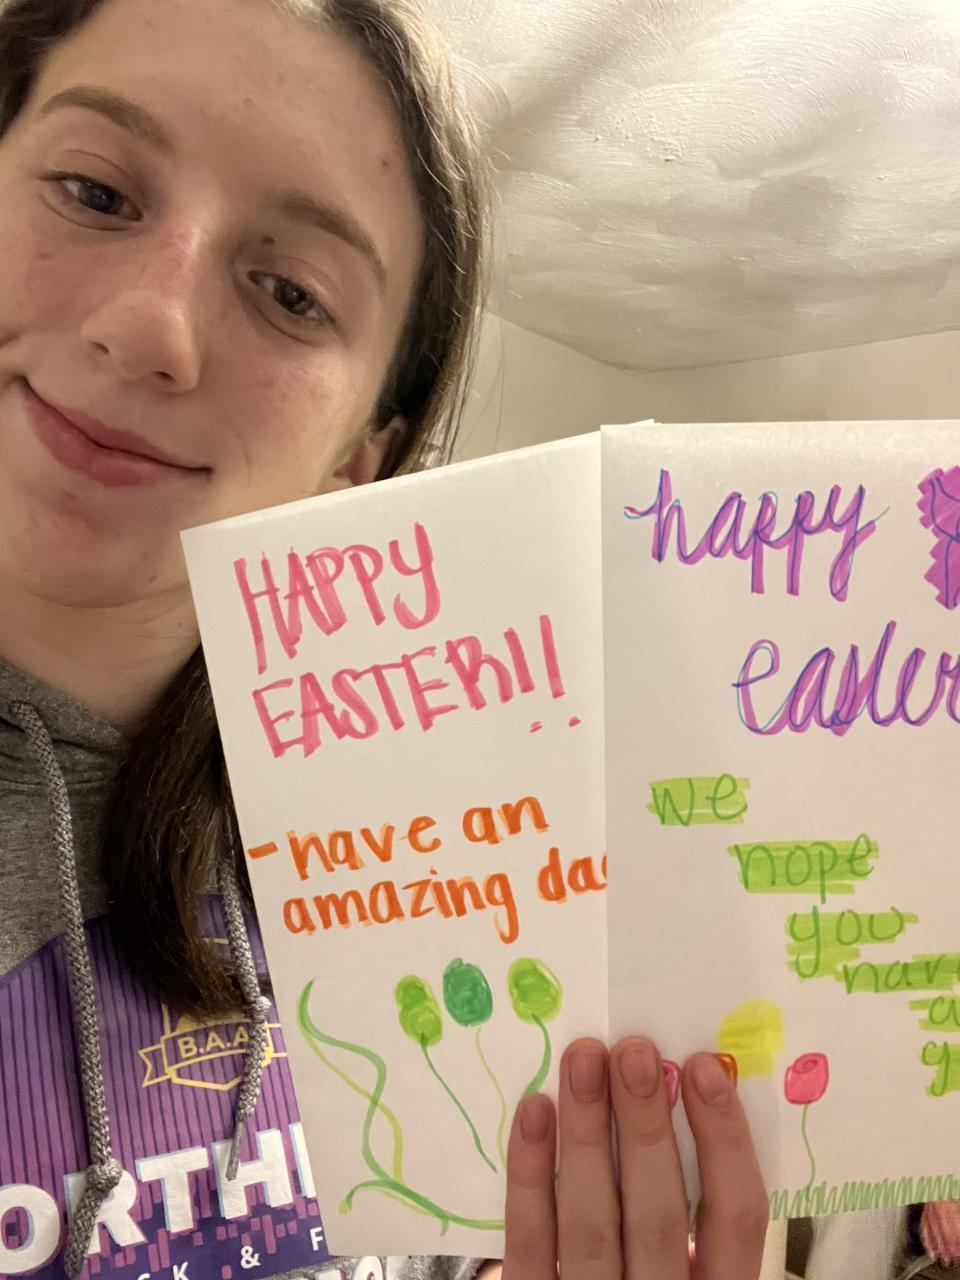 HAPPY
EASTER!!
-have an
amazing da
happy
easter
we
hope
you
hav
a
g
B.A.A
ORTH
CK & F